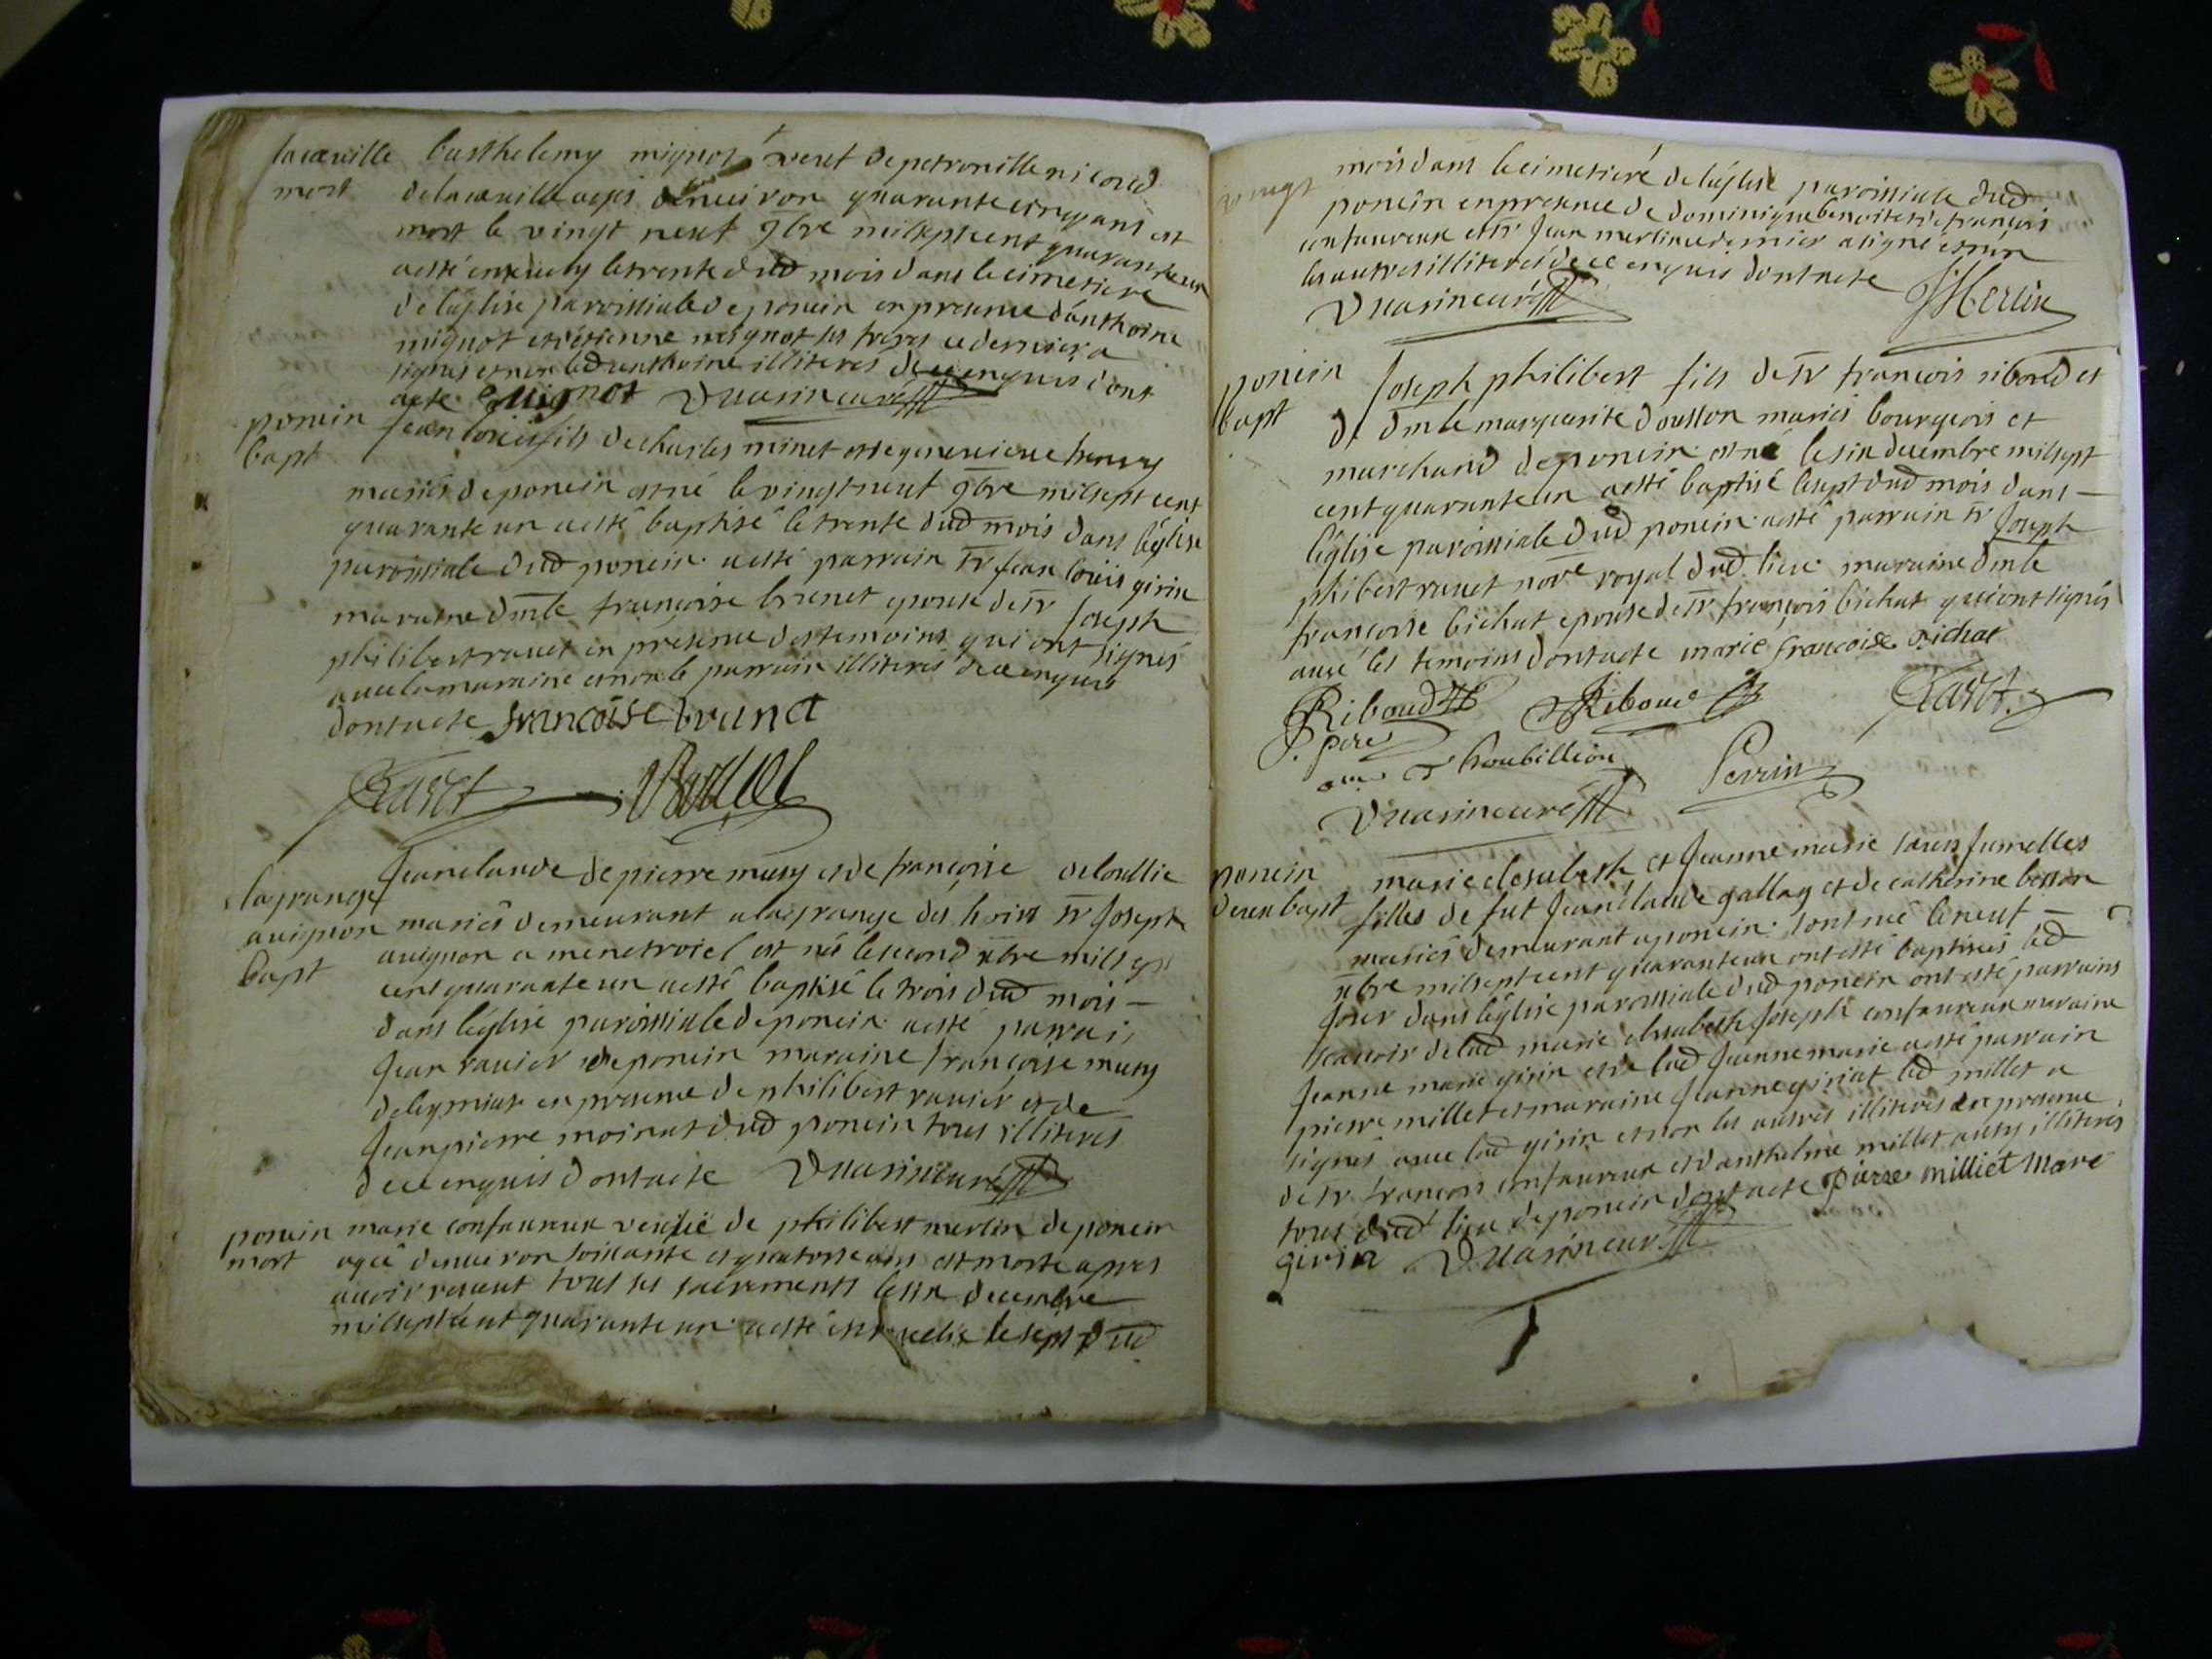 lacueille barthelemy mignot veuf de petronille nicoud
mort de la cueille agés denviron quarante cinq ans est
mort le vingt neuf 9bre mil sept cent quarante un
a esté enseuely le trente dud mois dans le cimetiere
de l'église paroissiale de poncin en presence d'anthoine
mignot et étienne mignot ses freres ce dernier a
signés et non led anthoine illiteres de ce enquis dont
acte E Mignot Duasin curé
poncin Jean louis fils de charles minet et de genevieve
bapt
mariés de poncin est né le vingt neuf 9bre mil sept cent
quarante un a esté baptisé le trente dud mois dans l'église
paroissiale dud poncin a esté parrain Sr Jean louis girin
maraine dmlle françoise brunet epouse de Sr Joseph
philibert ravet en presence des temoins qui ont signés
avec la maraine et non le parrain illiteres de ce enquis
dont acte francoise brunet
Ravet
lagrange Jean claude de pierre musy et de françoise
avignon mariés demeurant a la grange des hoirs Sr Joseph
bapt avignon a menetruel est né le second xbre mil sept
cent quarante un a esté baptisé le trois dud mois
dans l'église paroissiale de poncin a esté parrai
Jean ravier de poncin maraine françoise musy
de leymiat en presence de philibert ravier et de
Jean pierre moinat dud poncin tous illiteres
de ce enquis dont acte Duasin curé
poncin marie confaureux veufve de philibert merlin de poncin
mort agée denviron soixante et quatorse ans est morte apres
avoir receut tous ses sacrements le six decembre
mil sept cent quarante un a esté ensevelie le sept dud
mois dans le cimetiere de l'église paroissiale dud
poncin en presence de dominique benoit et de françois
confaureux et Sr Jean merlin ce dernier a signé et non
les autres illiteres de ce enquis dont acte
Duasin curé J Merlin
poncin Joseph philibert fils de Sr françois riboud et
bapt de dmlle marguerite dousson mariés bourgeois et
marchand de poncin est né le six decembre mil sept
cent quarante un a esté baptisé le sept dud mois dans
l'église paroissiale dud poncin a esté parrain Sr Joseph
philibert ravet nore royal dud lieu maraine dmlle
françoise bichat epouse de Sr françois bichat qui ont signés
avec les temoins dont acte marie francoise Bichat
Riboud Riboud Ravet
pere
Thoubillion Perrin
Duasin curé
poncin marie elesabeth et Jeanne marie soeurs Jumelles
deux bapt filles de fut Jean claude gallay et de catherine besson
mariés demeurant a poncin sont né le neuf
xbre mil sept cent quarante un ont esté baptisés led
Jour dans l'église paroissiale dud poncin ont esté parrains
scavoir de lad marie elisabeth Joseph confaureux maraine
Jeanne marie girin et de lad Jeanne marie a esté parrain
pierre millet et maraine Jeanne giriat led millet a
signés avec lad girin et non les autres illiteres en presence
de Sr françois confaureux et d'anthelme millet aussy illiteres
tous dud lieu de poncin dont acte pierre milliet marie
girin Duasin curé